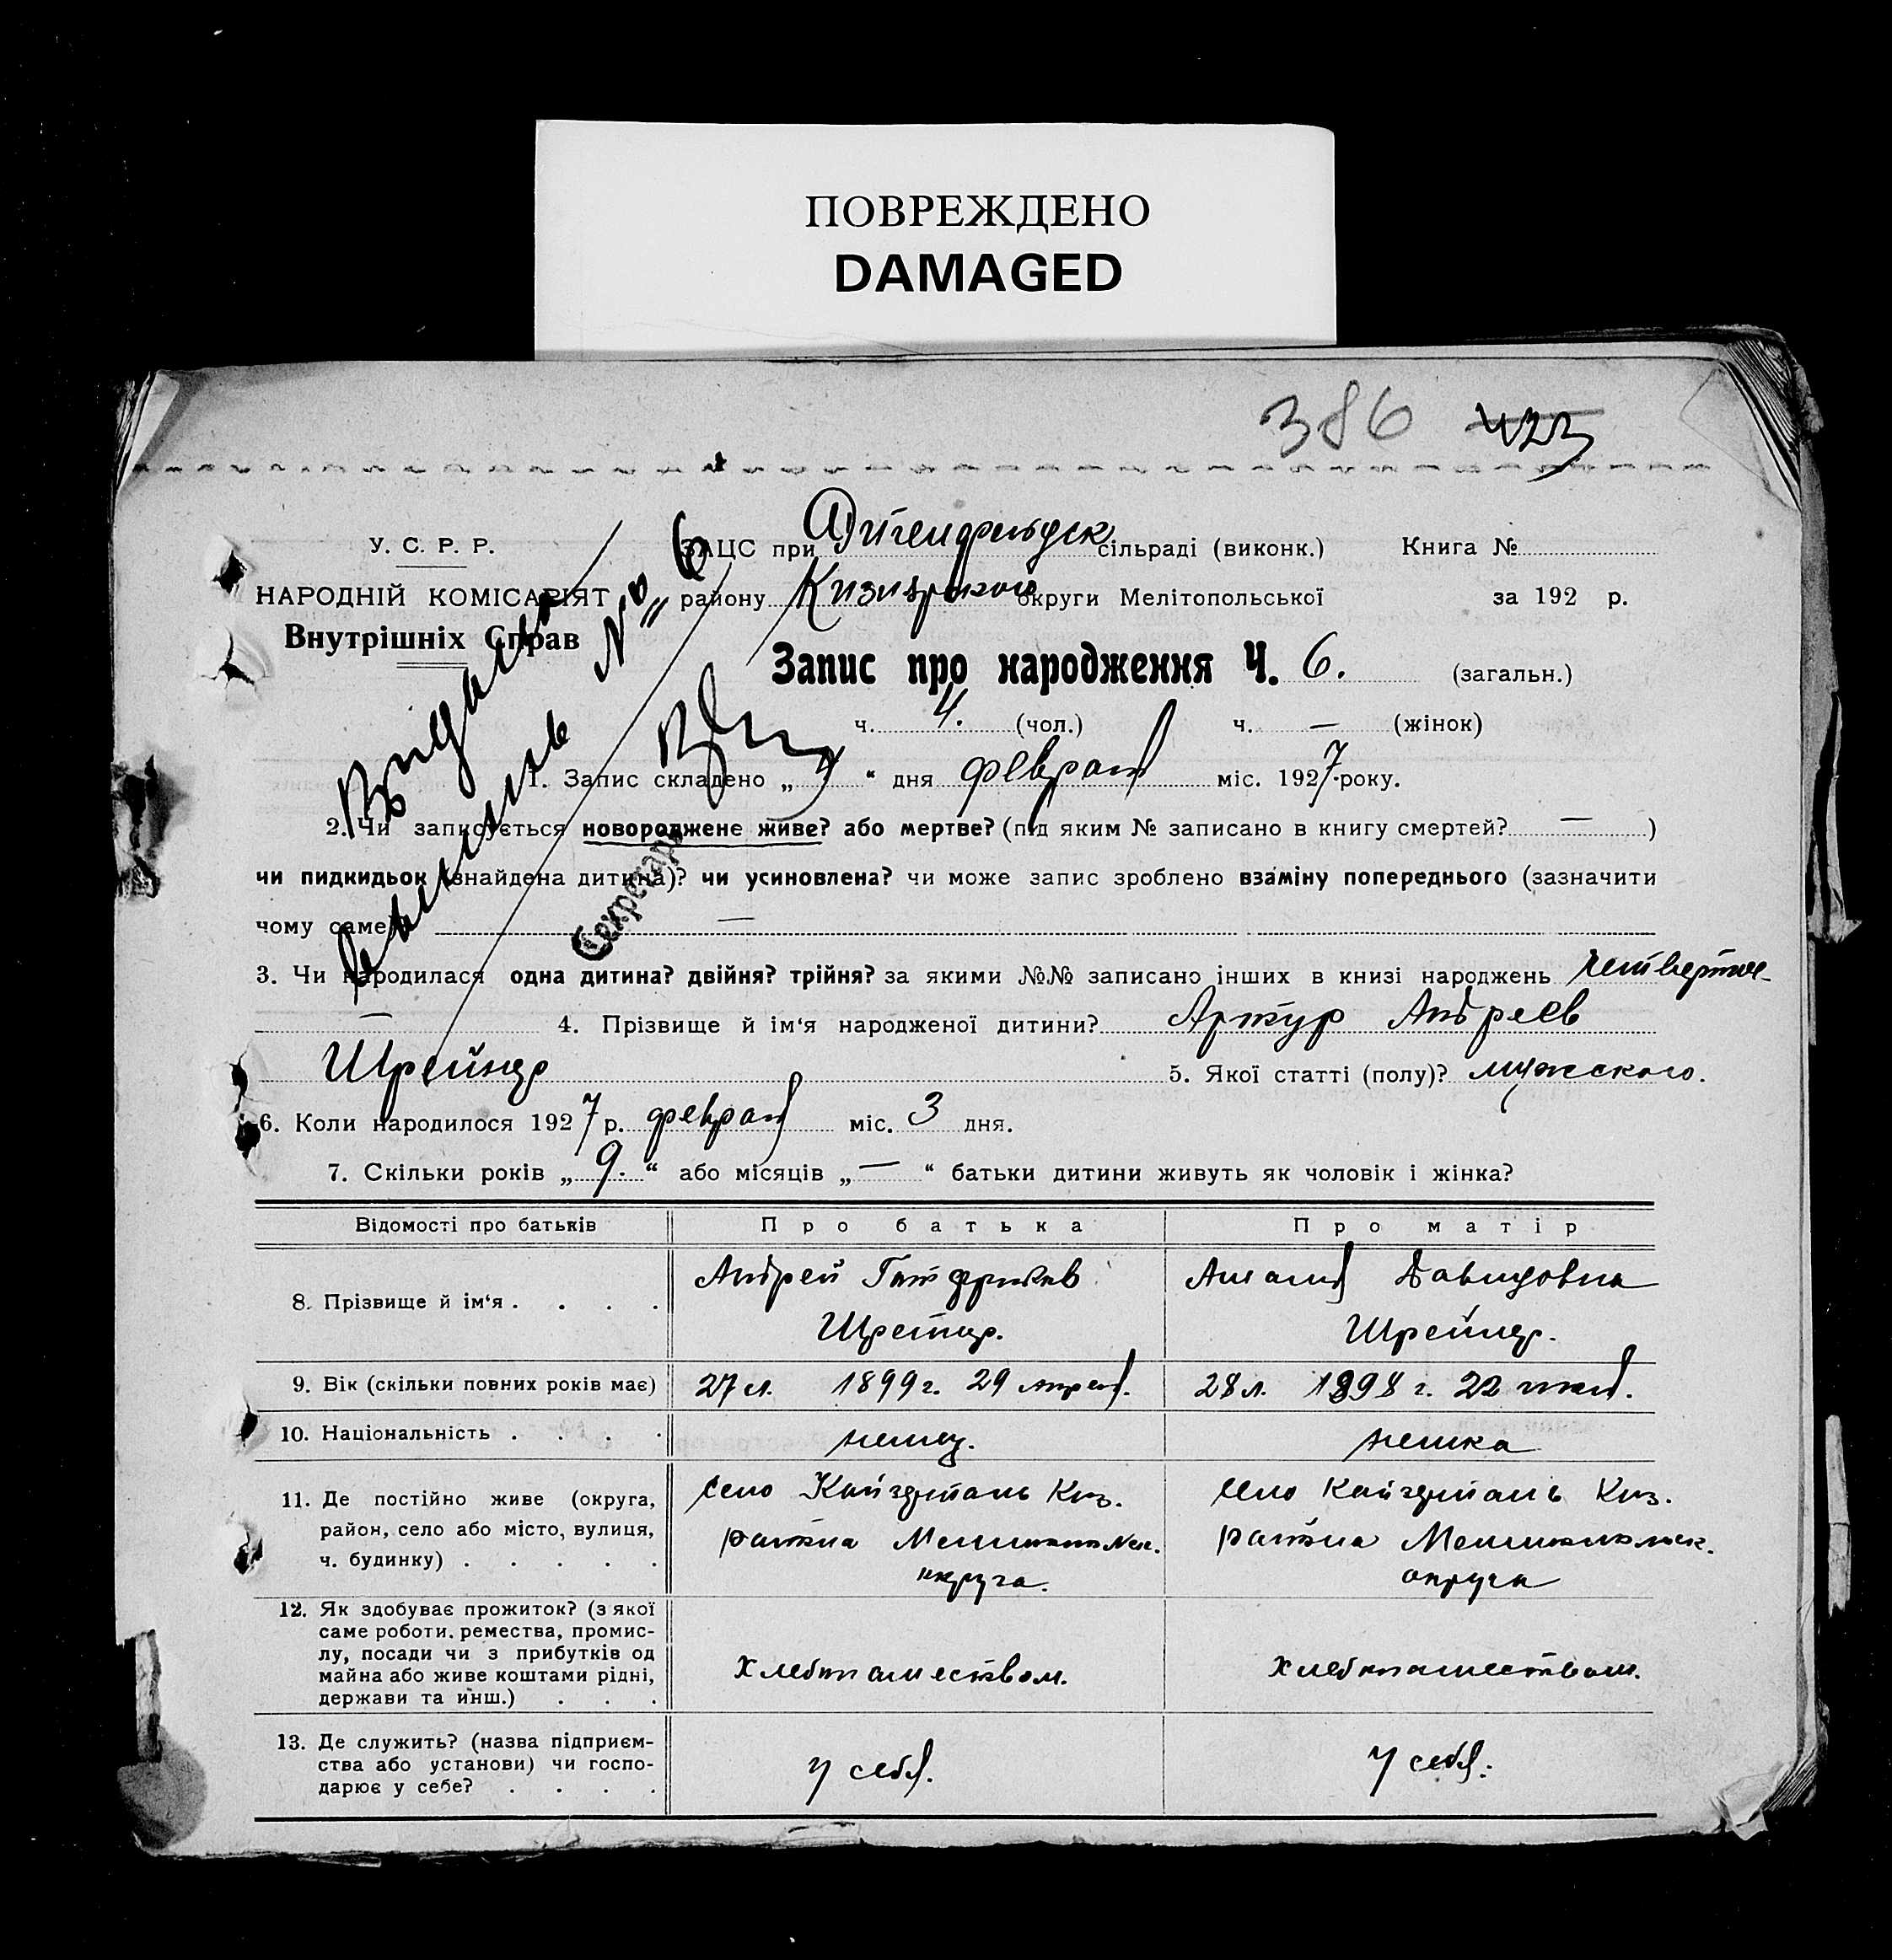 ПОВРЕЖДЕНО
DAMAGED
386 423
У. С. Р. Р.
НАРОДНІЙ КОМІСАРІЯТ
Внутрішніх Справ
ЗАЦС при сільраді (виконк.) Книга №
району округи Мелітопольської за 192 р.
№ 6
Запис про народження Ч. 6. (загальн.)
ч. 4. (чол.) ч. — (жінок)
1. Запис складено „ 4 “ дня февраля міс. 1927 року.
2. Чи записується новороджене живе? або мертве? (під яким № записано в книгу смертей? — )
чи пидкидьок (знайдена дитина)? чи усиновлена? чи може запис зроблено взаміну попереднього (зазначити
чому саме) —
Секретарь
3. Чи народилася одна дитина? двійня? трійня? за якими №№ записано інших в книзі народжень
— 4. Прізвище й ім‘я народженої дитини? Артур Андреев
Шрейнер 5. Якої статті (полу)? мужского.
6. Коли народилося 1927 р. февраля міс. 3 дня.
7. Скільки років „ 9. “ або місяців „ — “ батьки дитини живуть як чоловік і жінка?
Відомості про батьків Про батька Про матір
8. Прізвище й ім‘я . . . . Андрей Готфридов Шрейнер. Амалия Давидовна Шрейнер.
9. Вік (скільки повних років має) 27 л. 1899 г. 29 апреля. 28 л. 1898 г. 22
10. Національність . . . . немец. немка
11. Де постійно живе (округа, село Кайзерталь Киз.
район, село або місто, вулиця, района
ч. будинку) . . . . . округа.
село Кайзерталь Киз.
района
округа
12. Як здобуває прожиток? (з якої
саме роботи. ремества, промис-
лу, посади чи з прибутків од
майна або живе коштами рідні,
держави та инш.) . . .
хлебопашеством. хлебопашеством.
13. Де служить? (назва підприєм-
ства або установи) чи госпо-
дарює у себе? . . . .
у себя. у себя.